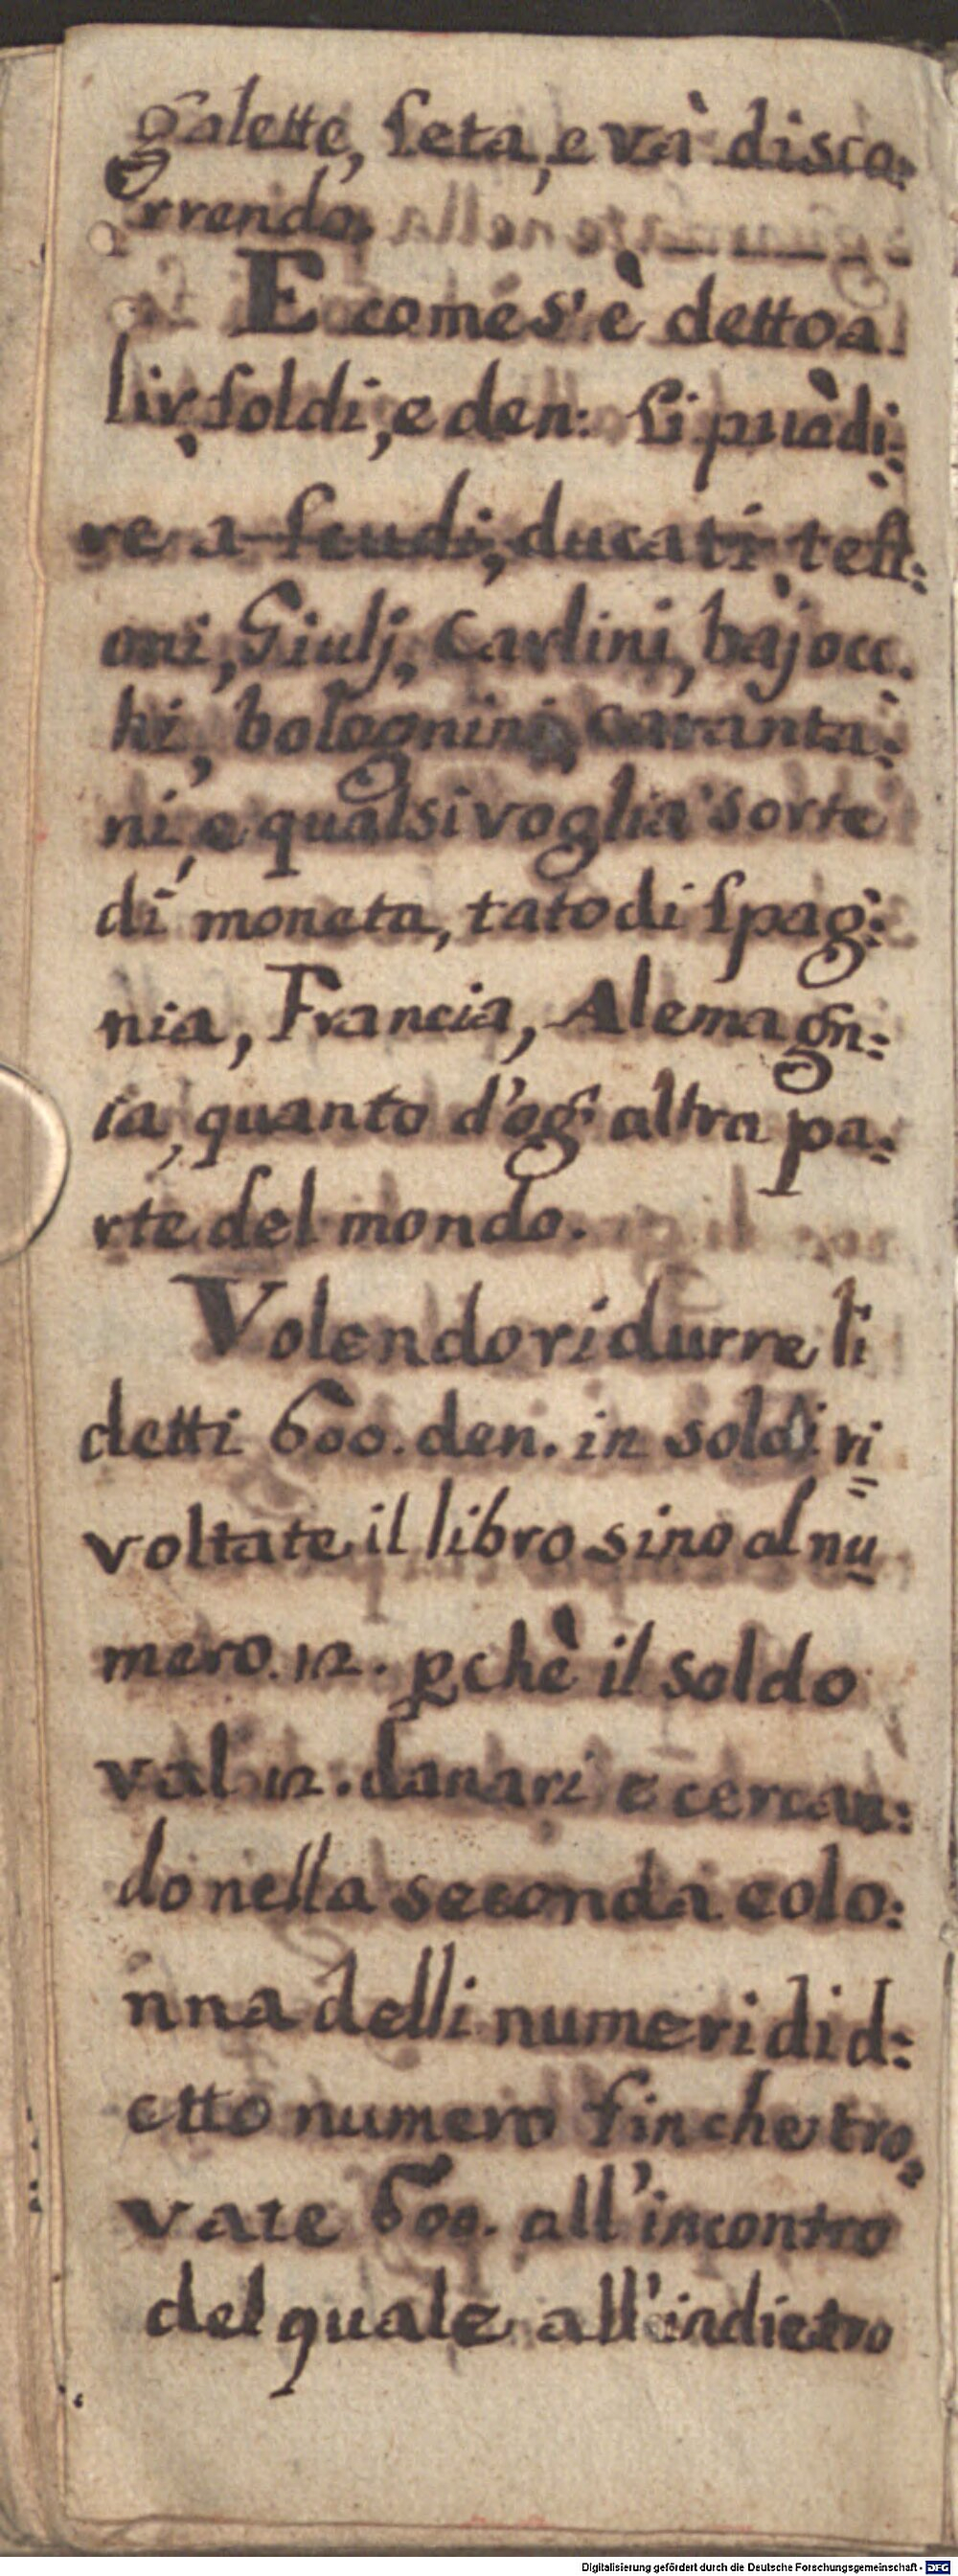 galette, seta, e và disco:
rrendo.
E come s'è detto a
lir, soldi, e den: si può di:
re a scudi, ducati, test:
oni, Giulj, Carlini, bajocc:
hi, bolognini, caranta:
ni, e qualsivoglia sorte
di moneta, tato di spag:
nia, Francia, Alemagn:
ia, quanto d'og' altra pa:
rte del mondo.
Volendo ridurre li
detti 600. den. in soldi ri=
voltate il libro sino al nu=
mero. 12. pchè il soldo
val 12. danari e cercan:
do nella seconda colo:
nna delli numeri di d:
etto numero finche tro:
vate 600. all'incontro
del quale all'indietro
Digitalisierung gefördert durch die Deutsche Forschungsgemeinschaft - DFG